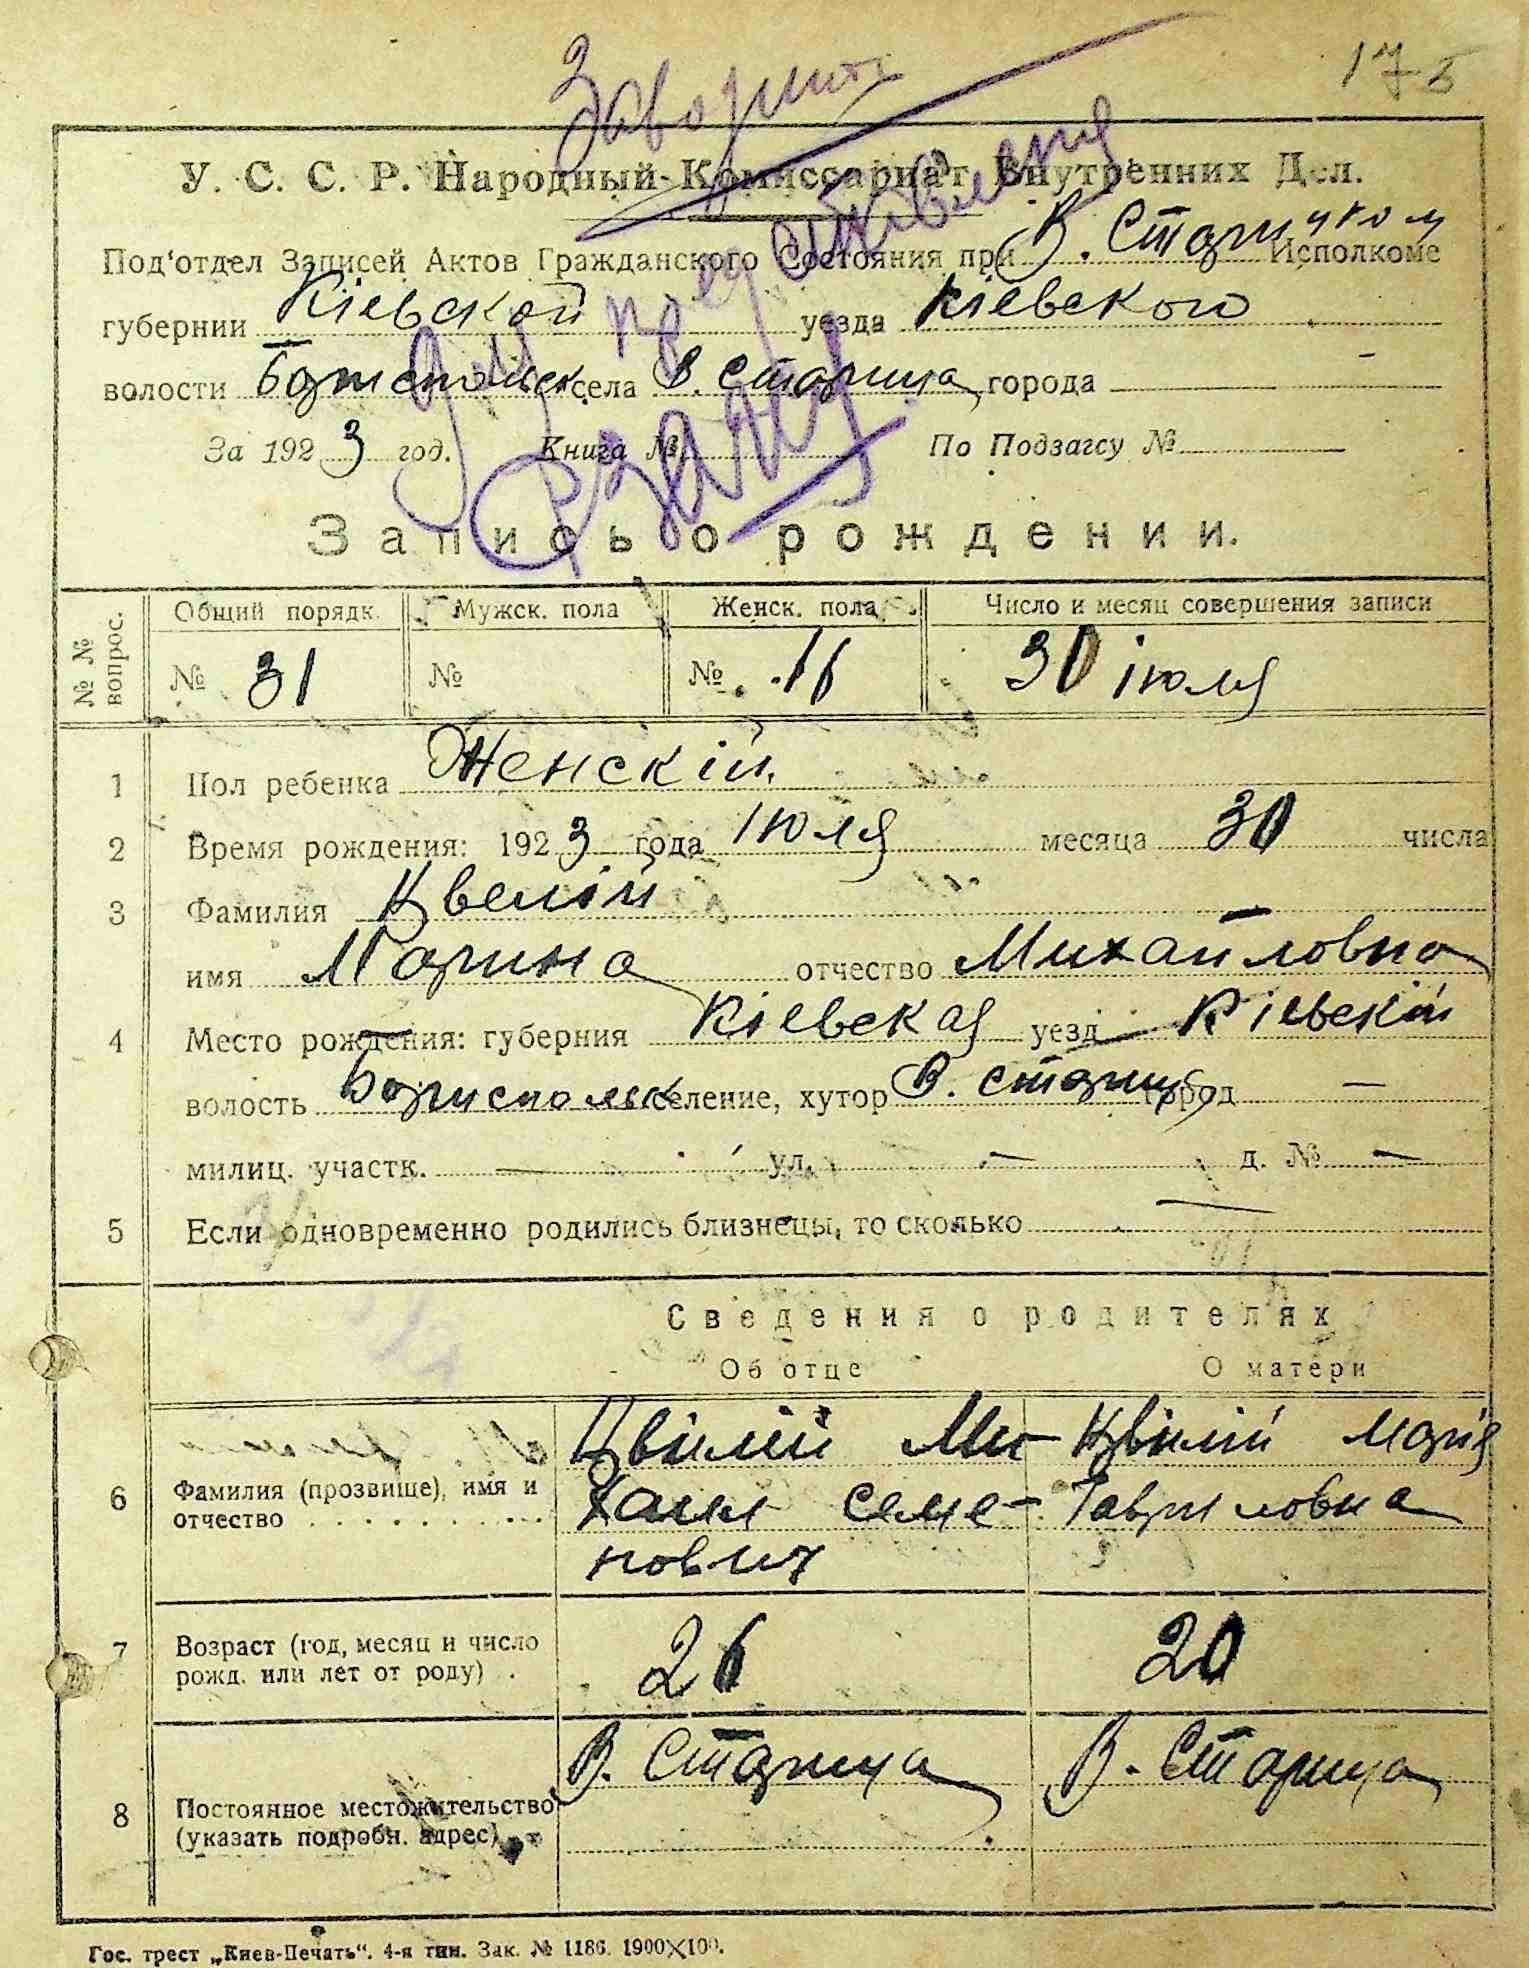 175
У. С. С. Р. Народный Комиссариат Внутренних Дел.
Под‘отдел Записей Актов Гражданского Состояния при В. Старицком Исполкоме
губернии Кіевской уезда Кіевского
волости Бориспольск села В. Старица города —
За 1923 год. Книга № По Подзагсу №
Запись о рождении.
№ № вопрос. Общий порядк. Мужск. пола Женск. пола Число и месяц совершения записи
№ 31 № № 11 30 іюля
1 Пол ребенка Женскій.
2 Время рождения: 1923 года Іюля месяца 30 числа
3 Фамилия Цвелій
имя Марина отчество Михайловна
4 Место рождения: губерния Кіевская уезд Кіевскій
волость Бориспольск селение, хутор В. Старица город —
милиц. участк. — ул. — д. № —
5 Если одновременно родились близнецы, то сколько —
Сведения о родителях
Об отце О матери
6 Фамилия (прозвище), имя и отчество . . . . . . . . . .
Цвілій Ми-
хаил Семе-
нович
Цвілій Марія
Гавриловна
7 Возраст (год, месяц и число рожд. или лет от роду) . 26 20
8 Постоянное местожительство (указать подробн. адрес) В. Старица В. Старица
Гос. трест „Киев-Печать“. 4-я тип. Зак. № 1186. 1900×100.